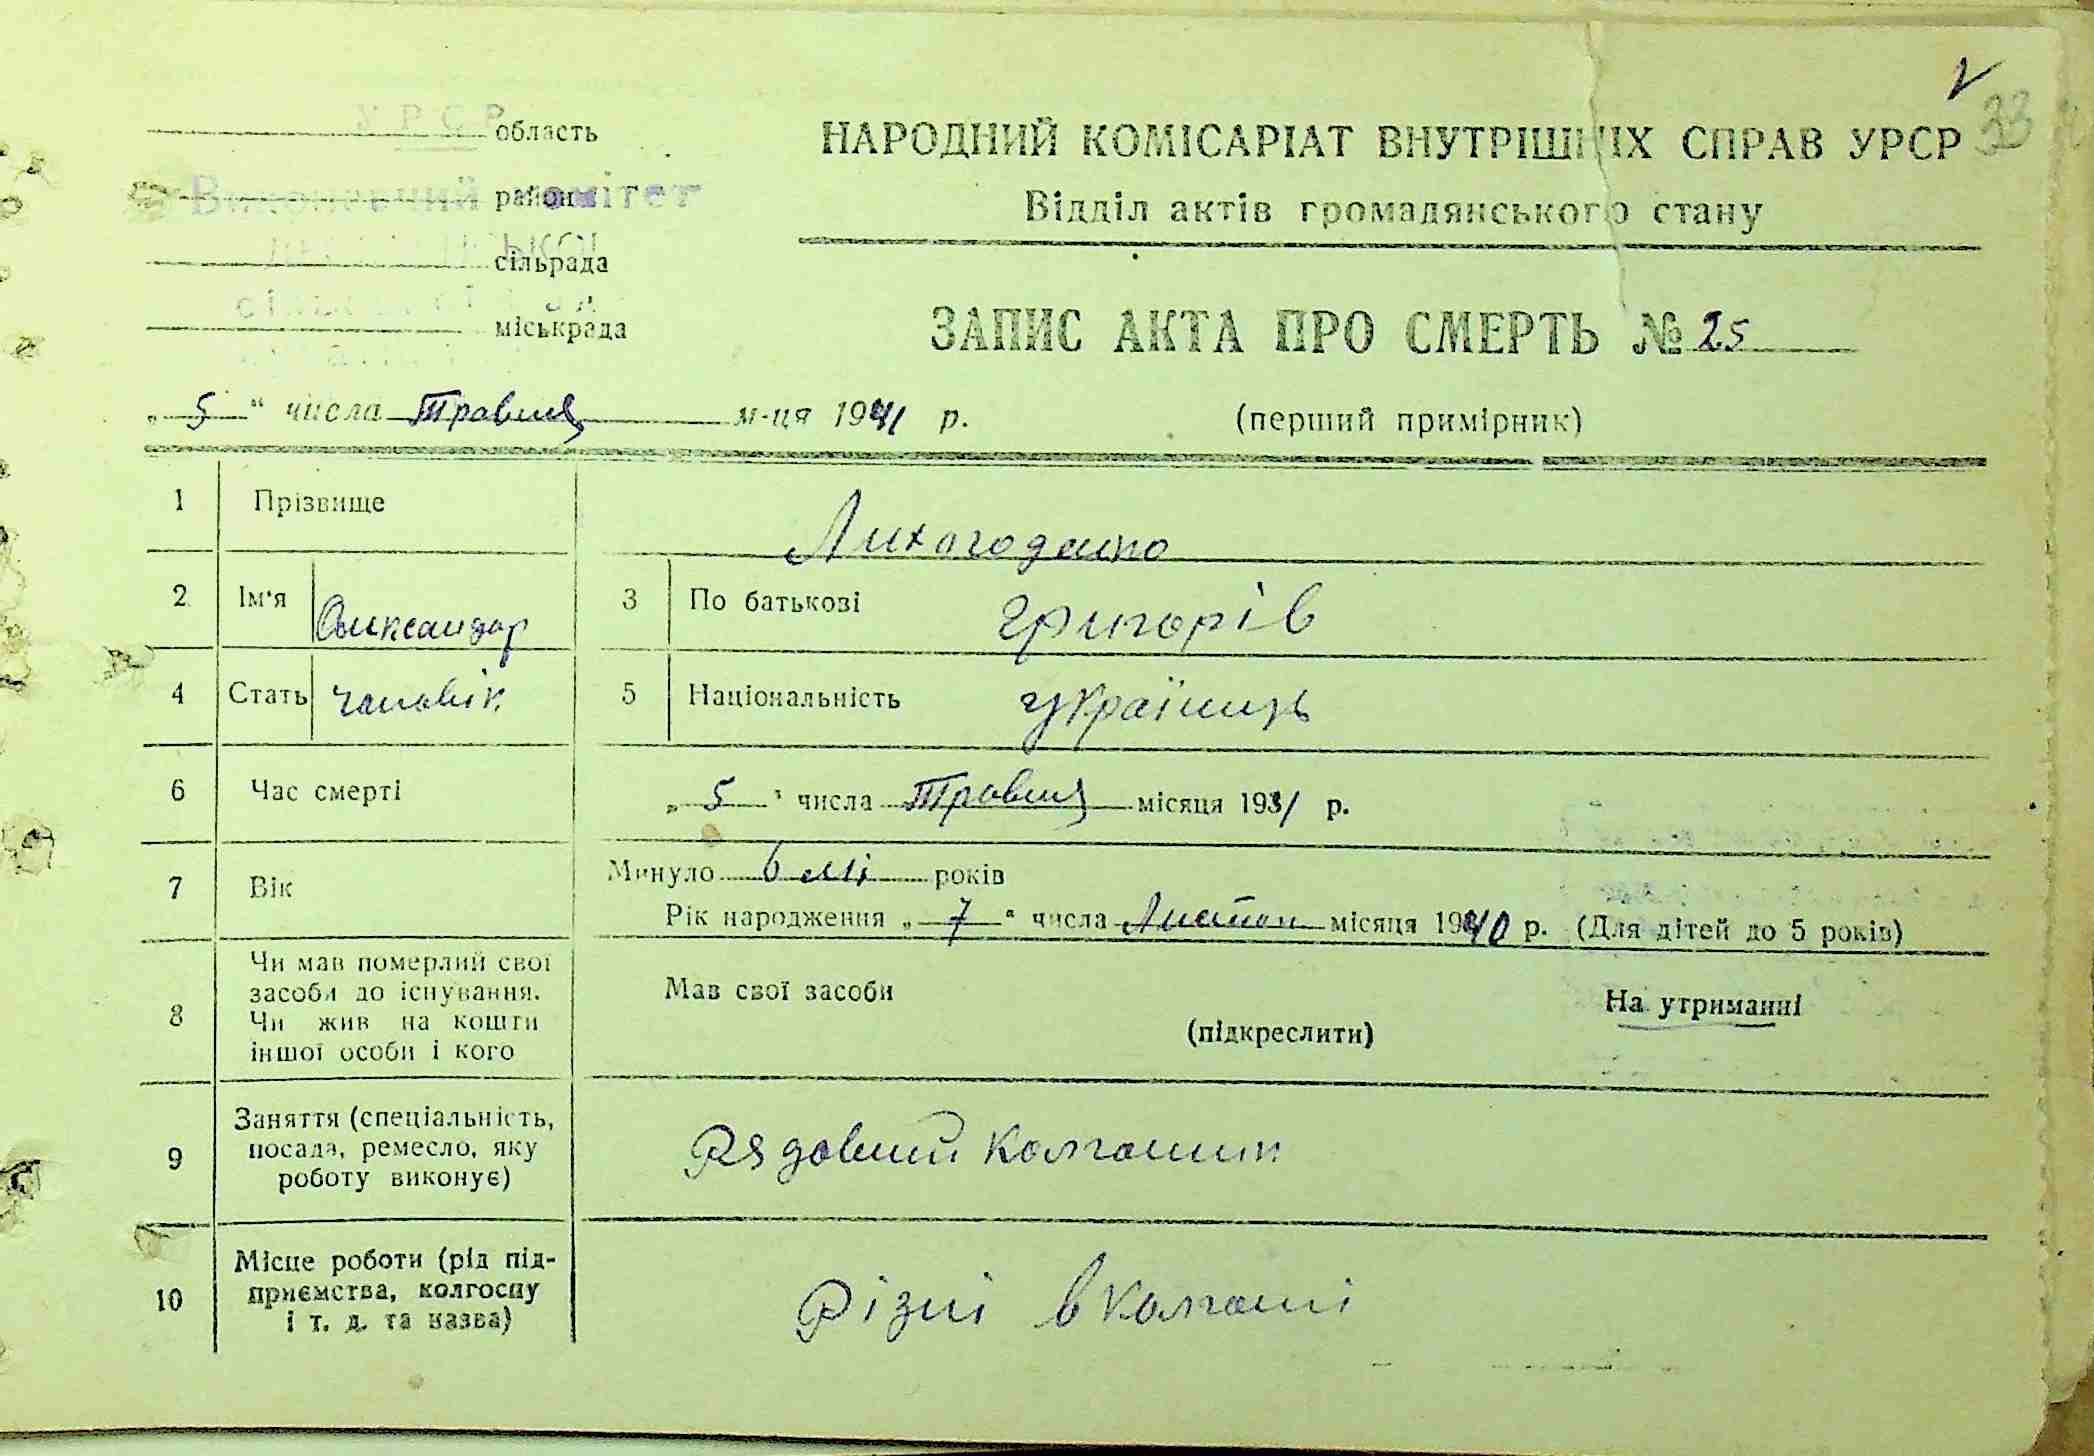 33
УРСР
область
НАРОДНИЙ КОМІСАРІАТ ВНУТРІШНІХ СПРАВ УРСР
Виконавчий комітет
району
Відділ актів громадянського стану
сільрада
міськрада
ЗАПИС АКТА ПРО СМЕРТЬ № 25
„ 5 “ числа Травня м-ця 1941 р.
(перший примірник)
1 Прізвище
2 Ім'я Олександор 3 По батькові Григорів
4 Стать чоловік 5 Національність українець
6 Час смерті „ 5 “ числа Травня місяця 1931 р.
7 Вік Минуло 6 мі років
Рік народження „ 7 “ числа Листоп місяця 1940 р. (Для дітей до 5 років)
8 Чи мав померлий свої засоби до існування. Чи жив на кошти іншої особи і кого
Мав свої засоби
(підкреслити)
На утриманні
9 Заняття (спеціальність, посада, ремесло, яку роботу виконує)
Рядовий колгошник
10 Місце роботи (рід підприємства, колгоспу і т. д. та назва)
Різні в колгоші